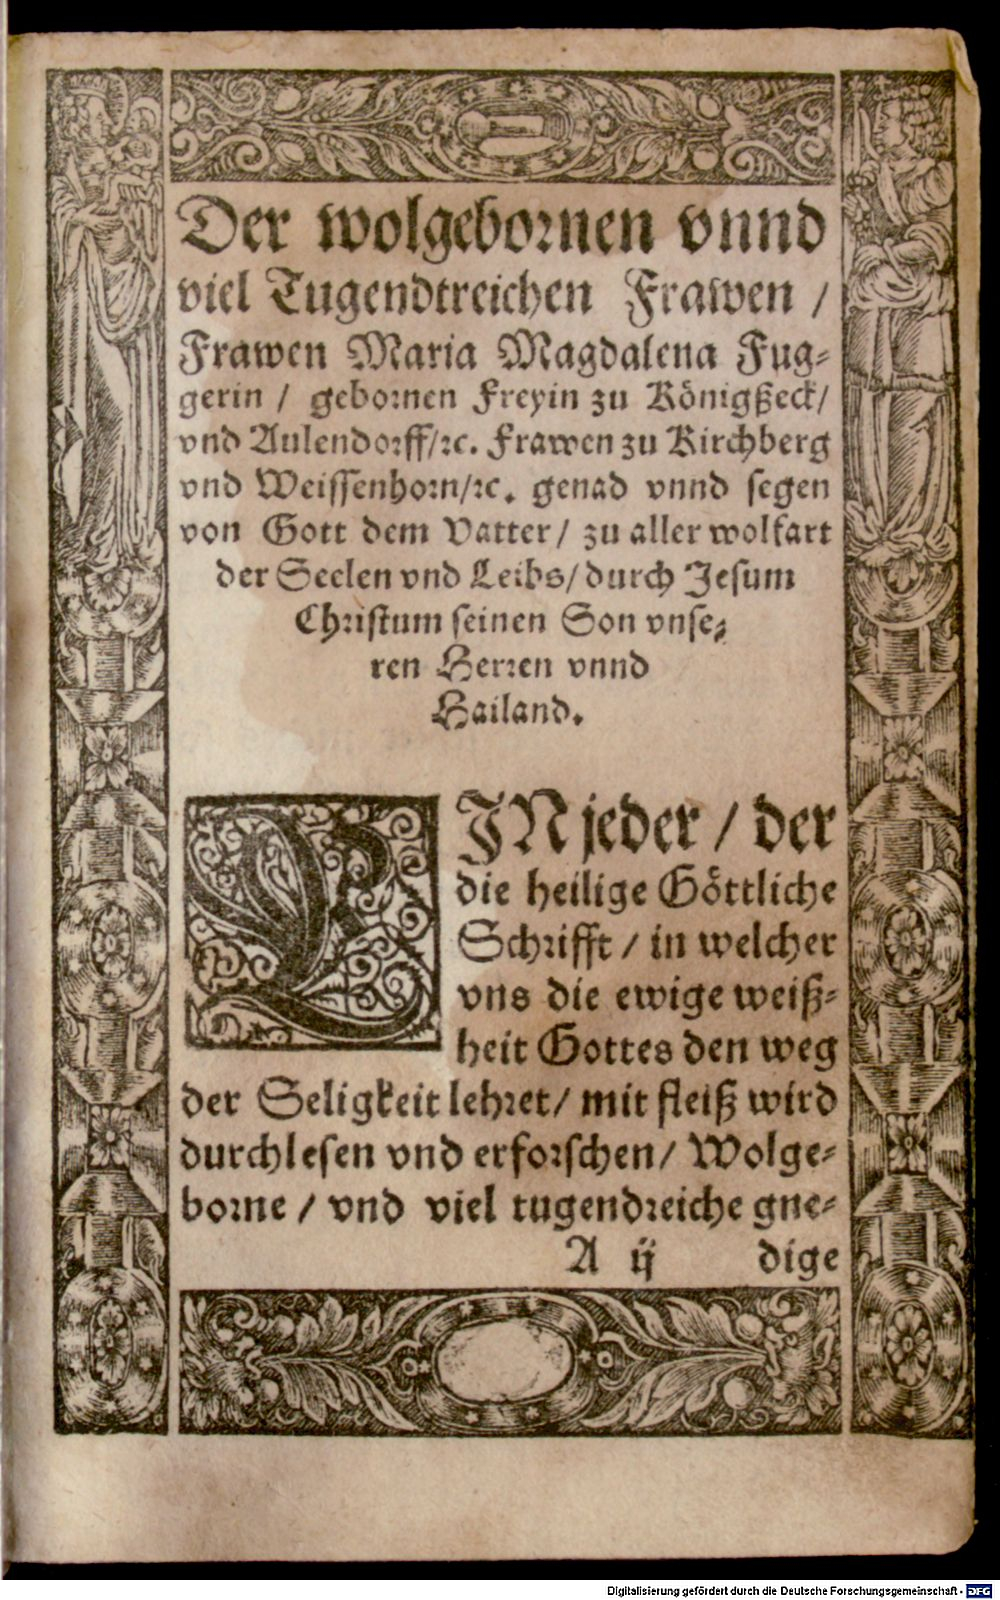 Der wolgebornen vnnd
viel Tugendtreichen Frawen /
Frawen Maria Magdalena Fug⸗
gerin / gebornen Freyin zu Königßeck/
vnd Aulendorff/ꝛc. Frawen zu Kirchberg
vnd Weissenhorn/ꝛc. genad vnnd segen
von Gott dem Vatter / zu aller wolfart
der Seelen vnd Leibs / durch Jesum
Christum seinen Son vnse⸗
ren Herren vnnd
Hailand.
EIN jeder / der
die heilige Göttliche
Schrifft / in welcher
vns die ewige weiß⸗
heit Gottes den weg
der Seligkeit lehret / mit fleiß wird
durchlesen vnd erforschen / Wolge⸗
borne / vnd viel tugendreiche gne⸗
A ij dige
Digitalisierung gefördert durch die Deutsche Forschungsgemeinschaft - DFG